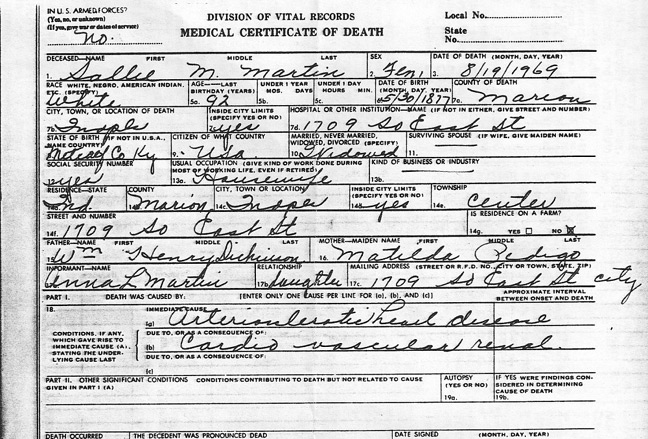 IN U.S. ARMED FORCES?
(Yes, no, or unknown)
(If yes, give war or dates of service)
No.
DIVISION OF VITAL RECORDS
MEDICAL CERTIFICATE OF DEATH
Local No.
State No.
DECEASED—NAME FIRST MIDDLE LAST SEX DATE OF DEATH (MONTH, DAY, YEAR)
1. Sallie M. Martin 2. Fem, 3. 8/19/1969
RACE WHITE, NEGRO, AMERICAN INDIAN, ETC. (SPECIFY) AGE—LAST BIRTHDAY (YEARS) UNDER 1 YEAR MOS. DAYS UNDER 1 DAY HOURS MIN. DATE OF BIRTH (MONTH, DAY, YEAR) COUNTY OF DEATH
White 5a. 92 5b. 5c. 5/30/1877 7a. Marion
CITY, TOWN, OR LOCATION OF DEATH INSIDE CITY LIMITS (SPECIFY YES OR NO) HOSPITAL OR OTHER INSTITUTION—NAME (IF NOT IN EITHER, GIVE STREET AND NUMBER)
7b. Indpls yes 7d. 1709 So East St
STATE OF BIRTH (IF NOT IN U.S.A., NAME COUNTRY) CITIZEN OF WHAT COUNTRY MARRIED, NEVER MARRIED, WIDOWED, DIVORCED (SPECIFY) SURVIVING SPOUSE (IF WIFE, GIVE MAIDEN NAME)
Co Ky 9. Usa 10. Widowed 11.
SOCIAL SECURITY NUMBER USUAL OCCUPATION (GIVE KIND OF WORK DONE DURING MOST OF WORKING LIFE, EVEN IF RETIRED) KIND OF BUSINESS OR INDUSTRY
12. yes 13a. Housewife 13b.
RESIDENCE—STATE COUNTY CITY, TOWN, OR LOCATION INSIDE CITY LIMITS (SPECIFY YES OR NO) TOWNSHIP
14a. Ind. 14b. Marion 14c. Indpls 14d. yes 14e. Center
STREET AND NUMBER IS RESIDENCE ON A FARM?
14f. 1709 So East St 14g. YES NO X
FATHER—NAME FIRST MIDDLE LAST MOTHER—MAIDEN NAME FIRST MIDDLE LAST
15. Wm Henry Dickinson 16. Matilda Pedigo
INFORMANT—NAME RELATIONSHIP MAILING ADDRESS (STREET OR R.F.D. NO., CITY OR TOWN, STATE, ZIP)
Anna L Martin 17b. daughter 17c. 1709 So East St city
PART I. DEATH WAS CAUSED BY: [ENTER ONLY ONE CAUSE PER LINE FOR (a), (b), AND (c)] APPROXIMATE INTERVAL BETWEEN ONSET AND DEATH
18. IMMEDIATE CAUSE
(a) Arteriosclerotic heart disease
CONDITIONS, IF ANY, WHICH GAVE RISE TO IMMEDIATE CAUSE (A), STATING THE UNDERLYING CAUSE LAST
DUE TO, OR AS A CONSEQUENCE OF:
(b) Cardio vascular renal.
DUE TO, OR AS A CONSEQUENCE OF:
(c)
PART II. OTHER SIGNIFICANT CONDITIONS CONDITIONS CONTRIBUTING TO DEATH BUT NOT RELATED TO CAUSE GIVEN IN PART I (A)
AUTOPSY (YES OR NO) IF YES WERE FINDINGS CONSIDERED IN DETERMINING CAUSE OF DEATH
19a. 19b.
DEATH OCCURRED THE DECEDENT WAS PRONOUNCED DEAD DATE SIGNED (MONTH, DAY, YEAR)